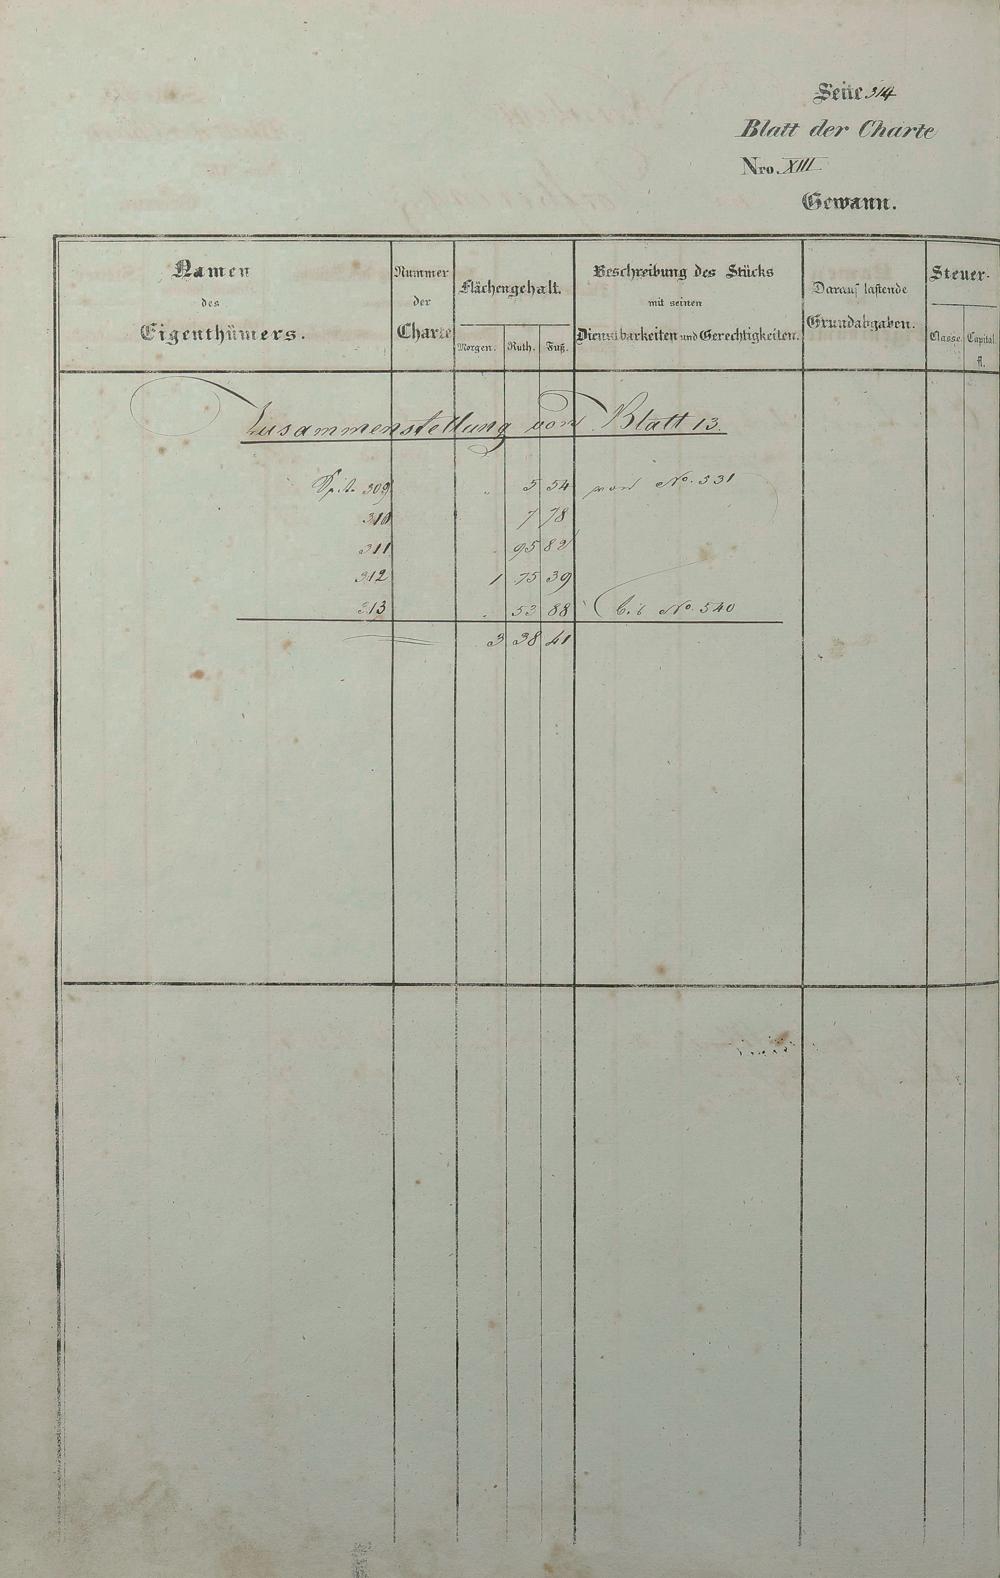 Seite 314
Blatt der Charte
Nro. XIII
Gewann.
Namen des Eigenthümers.
Nummer der Charte
Flächengehalt.
Morgen. Ruth. Fuß.
Beschreibung des Stücks mit seinen Dienstbarkeiten und Gerechtigkeiten.
Darauf lastende Grundabgaben.
Steuer-
Classe. Capital fl.
Zusammenstellung von Blatt 13.
Seite 309 " 5 54 von No. 531
310 7 78
311 . 95 82
312 1 75 39
313 . 53 88 bis No. 540
3 38 41